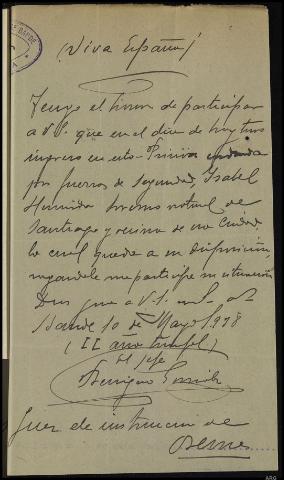 ¡Viva España!
Tengo el honor de participar
a V.S. que en el dia de hoy tuvo
ingreso en esta Prision
por fuerzas de Seguridad, Isabel
natural de
Santiago y vecina de esa Ciudad
la cual queda a su disposición,
rogandole me participe su situación
Dios gue a V.S. m. a.
Bande 10 de Mayo 1938
(II año triunfal)
El jefe
Juez de instruccion de